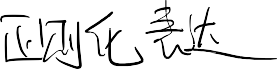 正则化表达